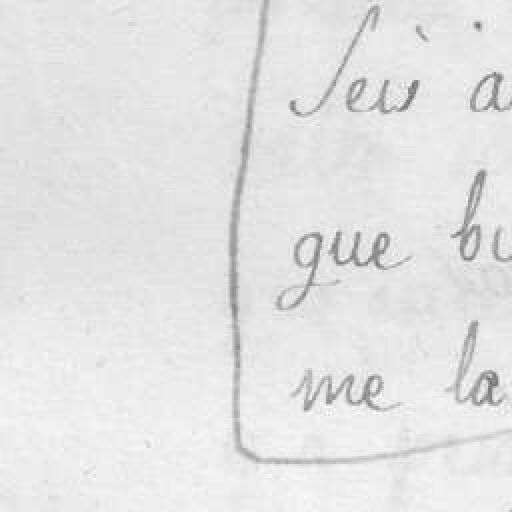 Seis a
que bu
me la